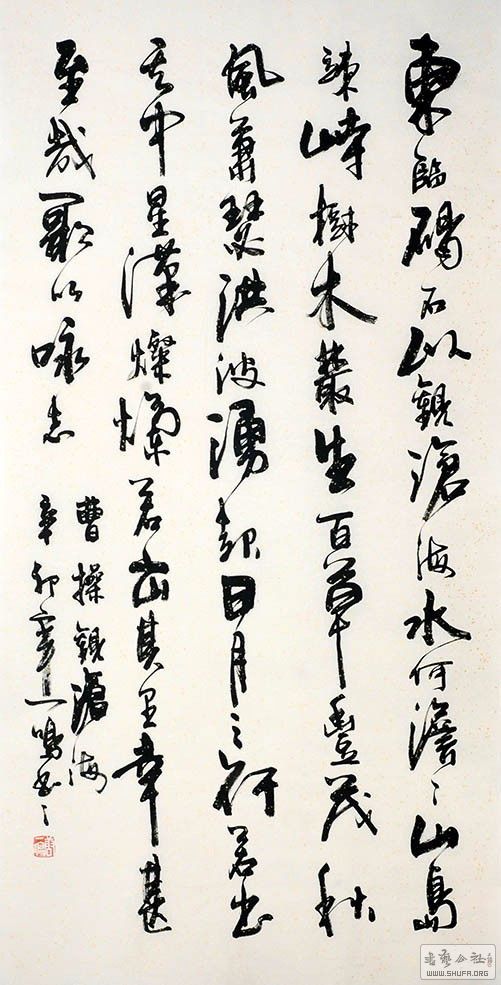 東臨碣石以觀滄海水何澹〻山島
竦峙樹木叢生百草豐茂秋
風蕭瑟洪波湧起日月之行若出
其中星漢燦爛若出其里幸甚
至哉歌以咏志
曹操觀滄海
辛卯一鳴书之
书艺公社
WWW.SHUFA.ORG